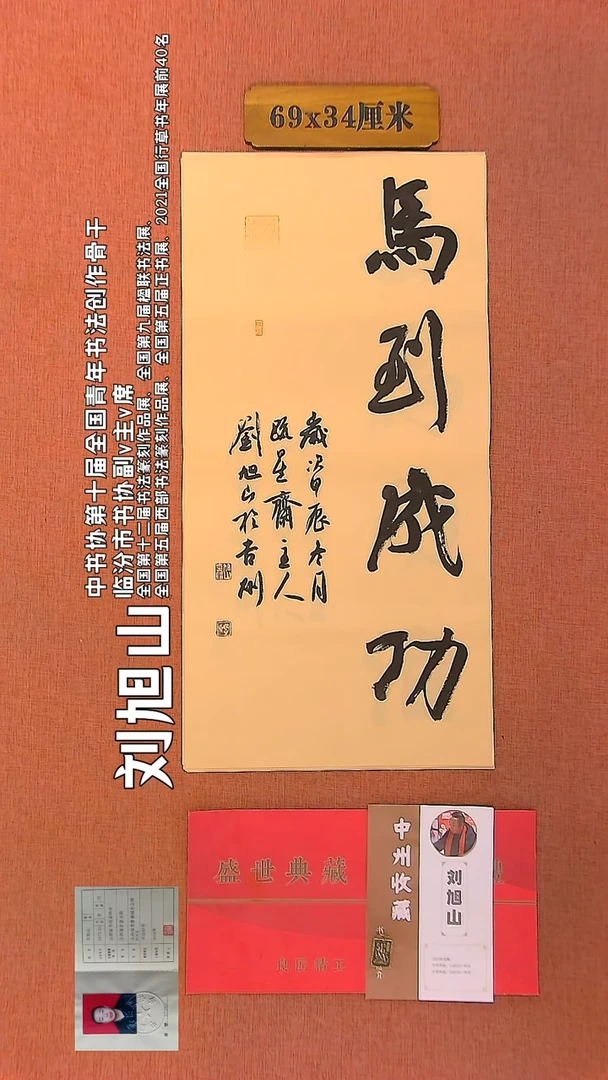 69x34厘米
馬到成功
歲次甲辰冬月
政星齋主人
劉旭山於古州
刘旭山
中书协第十届全国青年书法创作骨干
临汾市书协副v主v席
全国第十二届书法篆刻作品展、全国第九届楹联书法展、
全国第五届西部书法篆刻作品展、全国第五届正书展、2021全国行草书年展前40名
盛世典藏
中州收藏
刘旭山